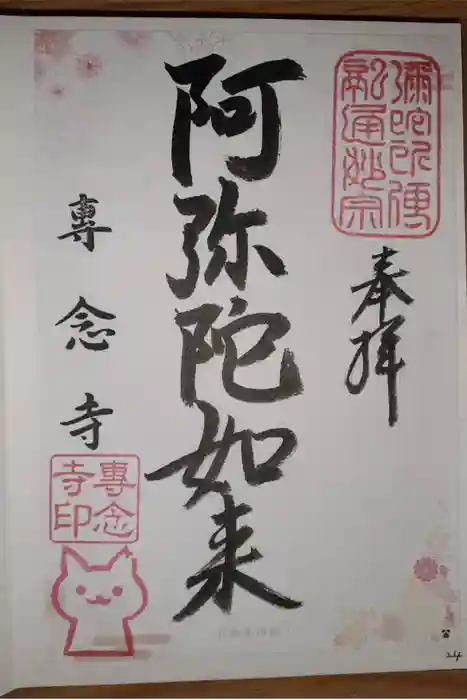 奉拝
阿弥陀如来
専念寺
専念
寺印
24